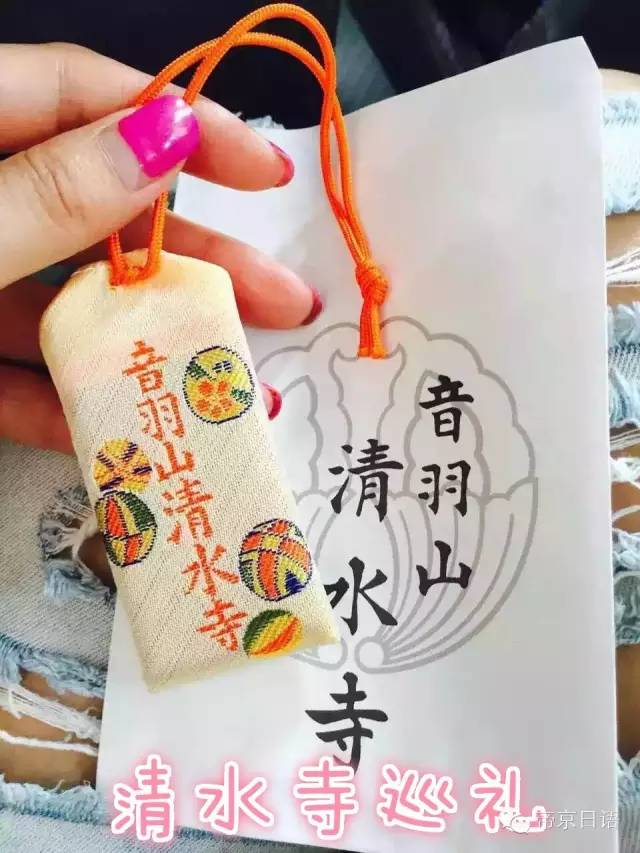 音羽山清水寺
音羽山
清水寺
清水寺巡礼
帝京日语